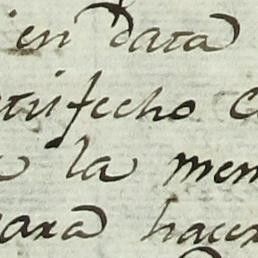 en data
trifecho
la mem
para hacer